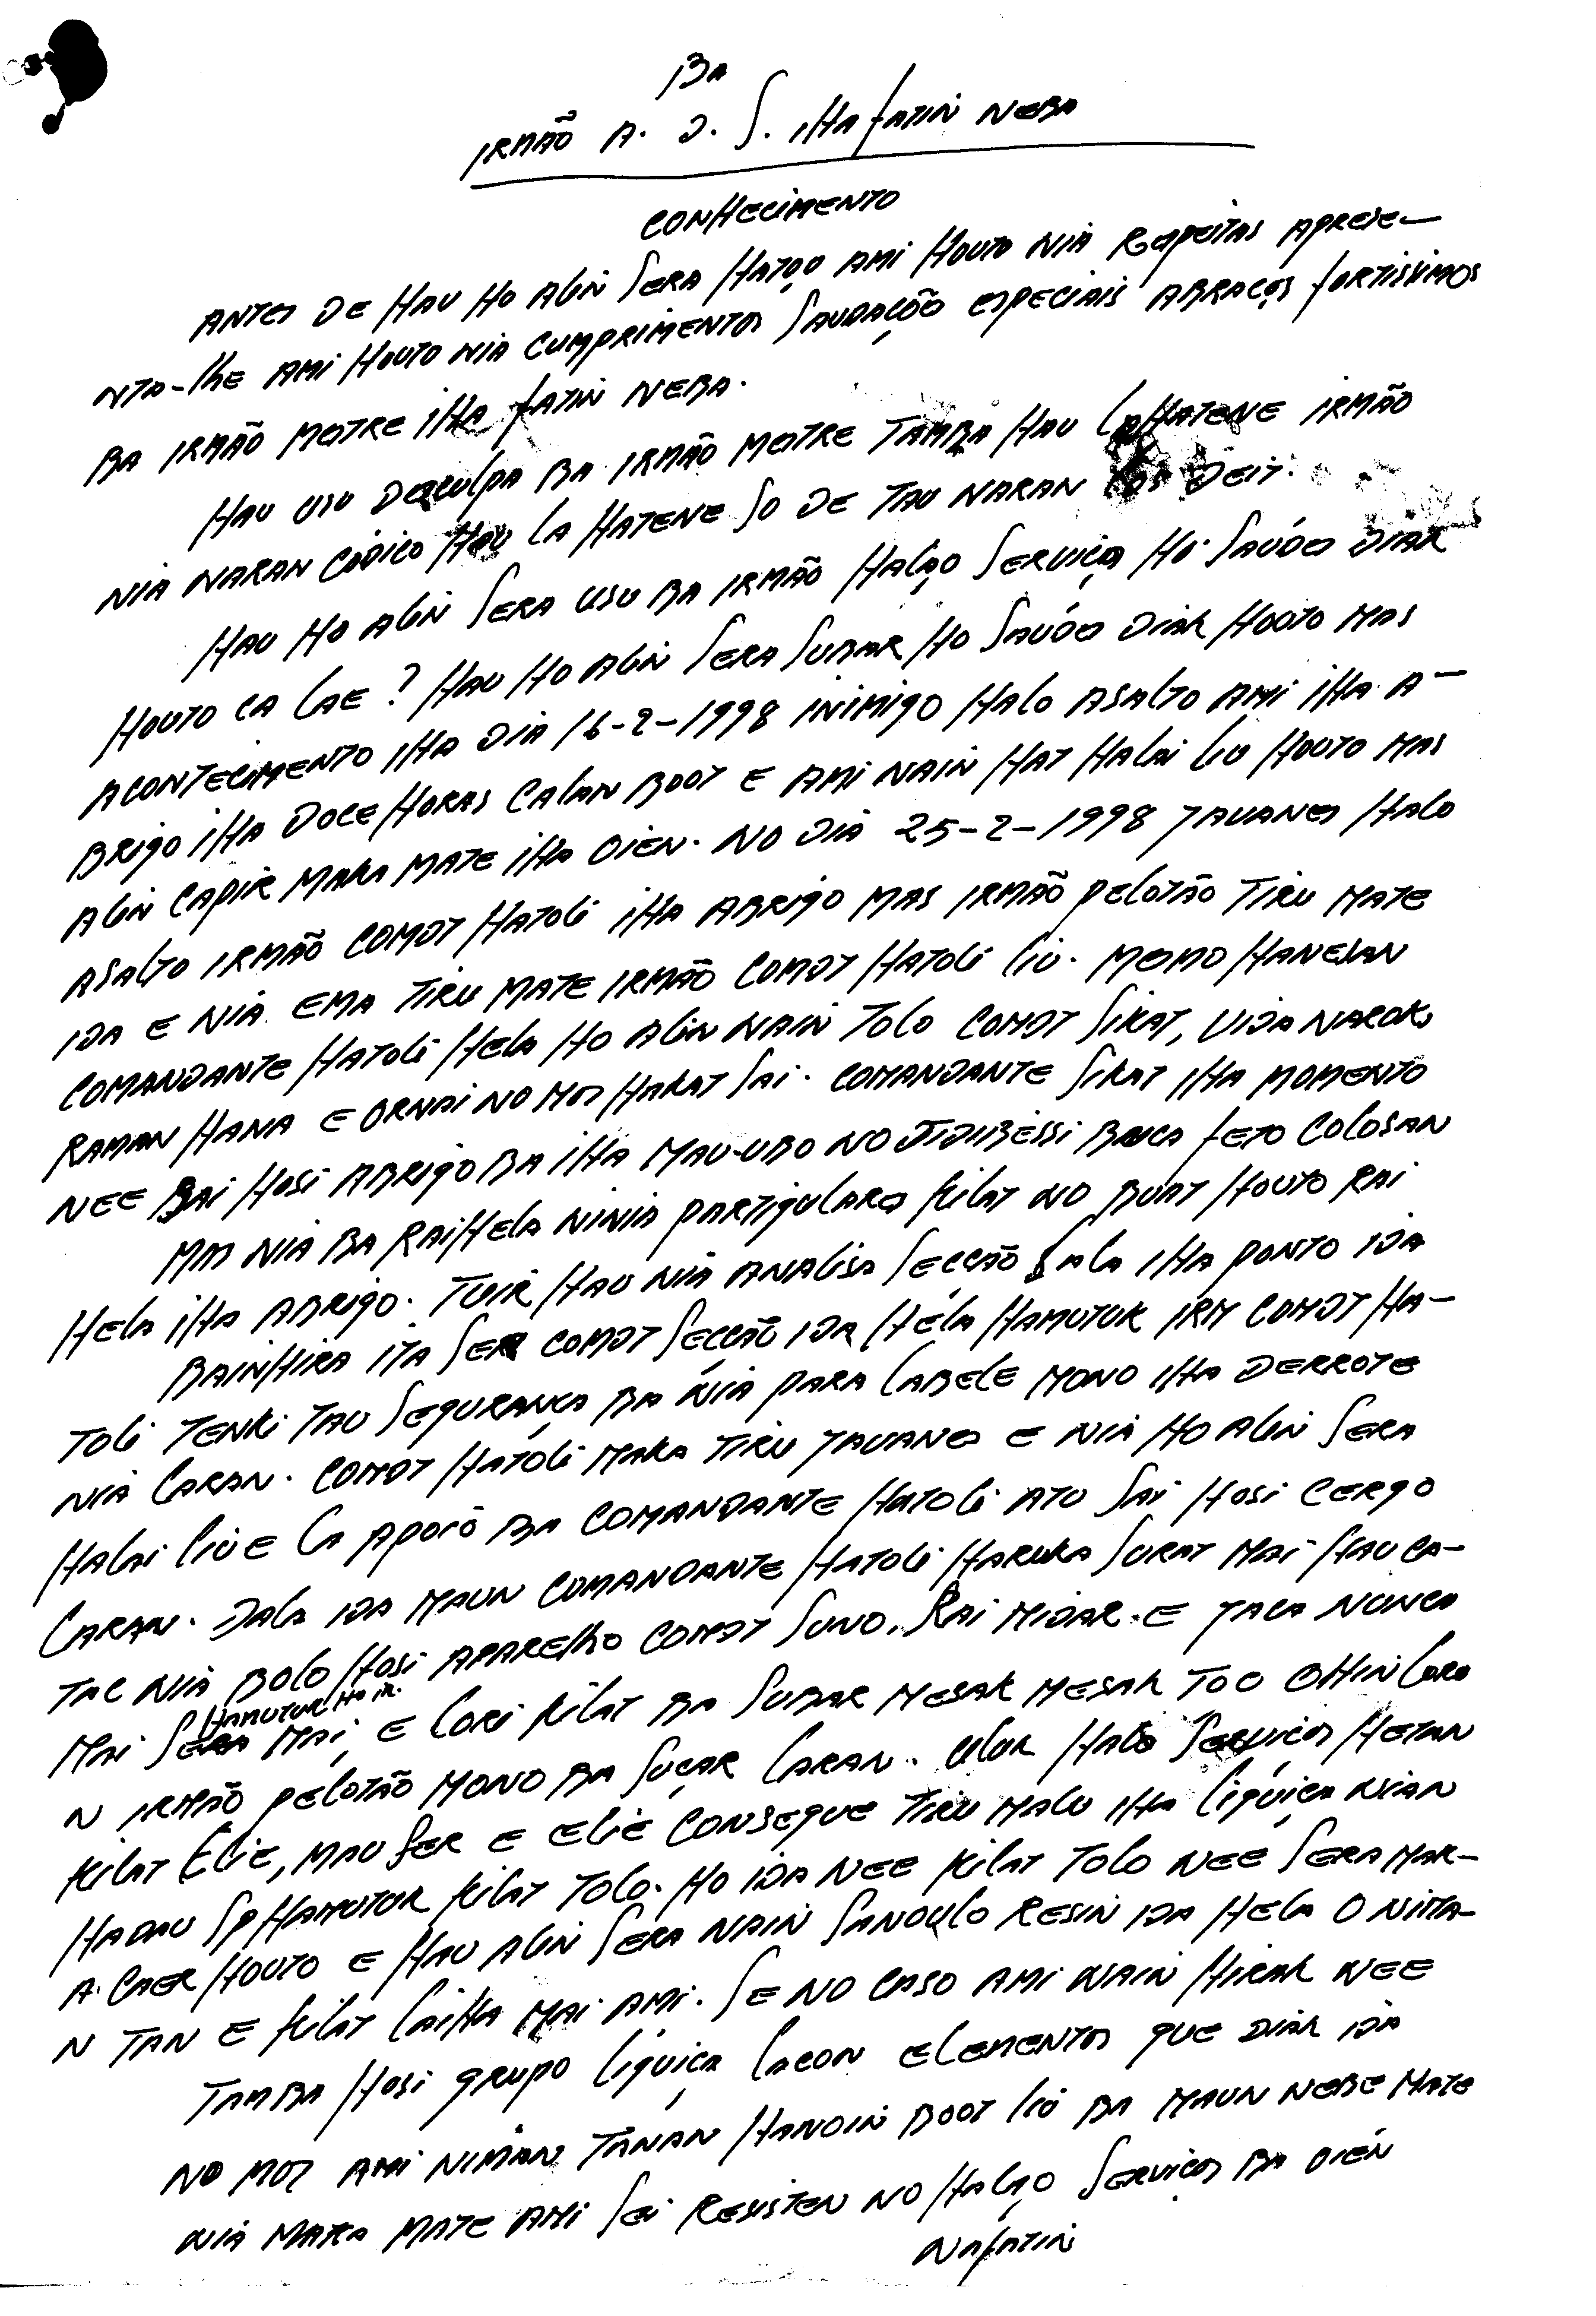 BA
IRMÃO A. J. S. IHA FATIN NEBA
CONHECIMENTO
ANTES DE HAU HO ALIN SERA HATOO AMI HOUTO NIA RESPEITAS APRESE-
NTA-LHE AMI HOUTO NIA CUMPRIMENTOS SAUDAÇÕO ESPECIAIS ABRAÇOS FORTISSIMOS
BA IRMÃO MESTRE IHA FATIN NEBA.
HAU USU DESCULPA BA IRMÃO MESTRE TAMBA HAU LAHATENE IRMÃO
NIA NARAN CÓDICO HAU LA HATENE SO DE TAU NARAN DEIT.
HAU HO ALIN SERA USU BA IRMÃO HALAO SERVIÇO HO SAÚDES DIAK
HOUTO CA LAE? HAU HO ALIN SERA SUBAR HO SAÚDES DIAK HOUTO MAS
ACONTECIMENTO IHA DIA 16-2-1998 INIMIGO HALO ASALTO AMI IHA A-
BRIGO IHA DOCE HORAS CALAN BOOT E AMI NAIN HAT HALAI LIU HOUTO MAS
ALIN CAPIR MAKA MATE IHA OIEN. NO DIA 25-2-1998 JAUANES HALO
ASALTO IRMÃO COMDT HATOLI IHA ABRIGO MAS IRMÃO PELOTÃO TIRU MATE
IDA E NIA EMA TIRU MATE IRMÃO COMDT HATOLI LIU. MESMO HANESAN
COMANDANTE HATOLI HELA HO ALIN NAIN TOLO COMDT SIKAT, UIDA NAROK
RAMAN HANA E ORNAI NO MOS HAKAT SAI. COMANDANTE SIKAT IHA MOMENTO
NEE BAI HOSI ABRIGO BA IHA MAU-UBO NO DIDIBESSI BUCA FETO COLOSAN
MM NIA BA RAIHELA NINIA PARTIGULARES KILAT NO BUAT HOUTO RAI
HELA IHA ABRIGO. TUIR HAU NIA ANALISA SECCÃO SALA IHA PONTO IDA
BAINHIRA ITA SER COMDT SECCÃO IDA HELA HAMUTUK IRM COMDT HA-
TOLI TENKI TAU SEGURANÇA BA NIA PARA LABELE MONO IHA DERROTE
NIA LARAN. COMDT HATOLI MAKA TIRU JAUANES E NIA HO ALIN SERA
HALAI LIU E LA APOIO BA COMANDANTE HATOLI ATU SAI HOSI CERGO
LARAN. DALA IDA MAUN COMANDANTE HATOLI HARUKA SURAT MAI HAU CA-
TAC NIA BOLO HOSI APARELHO COMDT SUNO, RAI MIDAR. E JACA NUNCO
HAMUTUK HO IR.
MAI SERA MAI, E LORI KILAT BA SUBAR MESAK MESAK TOO OHIN LORO
N IRMÃO PELOTÃO MONO BA SUÇAR LARAN. ULUK HALO SERVIÇOS HETAN
KILAT ELIE, MAU SER E ELIE CONSEGUE TIRU MALU IHA LIQUIÇA NIAN
HADAU SP HAMUTUK KILAT TOLO. HO IDA NEE KILAT TOLO NEE SERA MAK-
A CAER HOUTO E HAU ALIN SERA NAIN SANOULO RESIN IDA HELA O NIMA-
N TAN E KILAT LAIHA MAI AMI. SE NO CASO AMI NAIN HIRAK NEE
TAMBA HOSI GRUPO LIQUIÇA LACON ELEMENTOS QUE DIAK IDA
NO MOS AMI NIMAN TANAN HANOIN BOOT LIU BA MAUN NEBE MATE
NIA MAKA MATE AMI SEI RESISTEN NO HALAO SERVIÇOS BA OIEN
NAFATIN